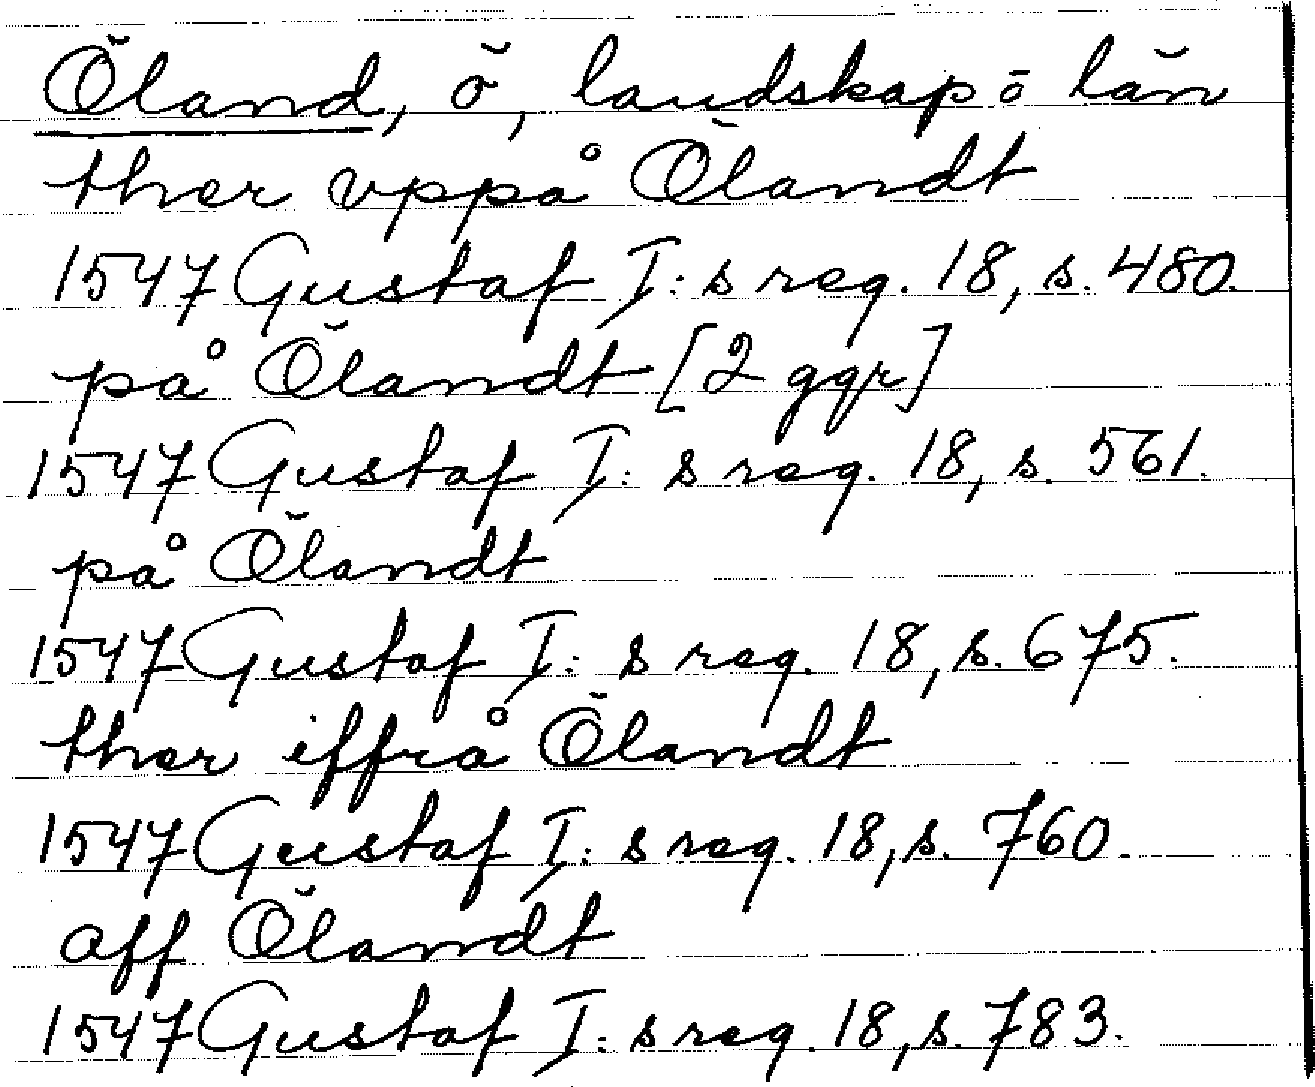 Öland, ö, landskap o län
ther vppå Ölandt
1547 Gustaf I:s reg. 18, s. 480.
på Ölandt [2 ggr]
1547 Gustaf I:s reg. 18, s. 561.
på Ölandt
1547 Gustaf I:s reg. 18, s. 675.
ther iffrå Ölandt
1547 Gustaf I:s reg. 18, s. 760.
aff Ölandt
1547 Gustaf I:s reg. 18, s. 783.